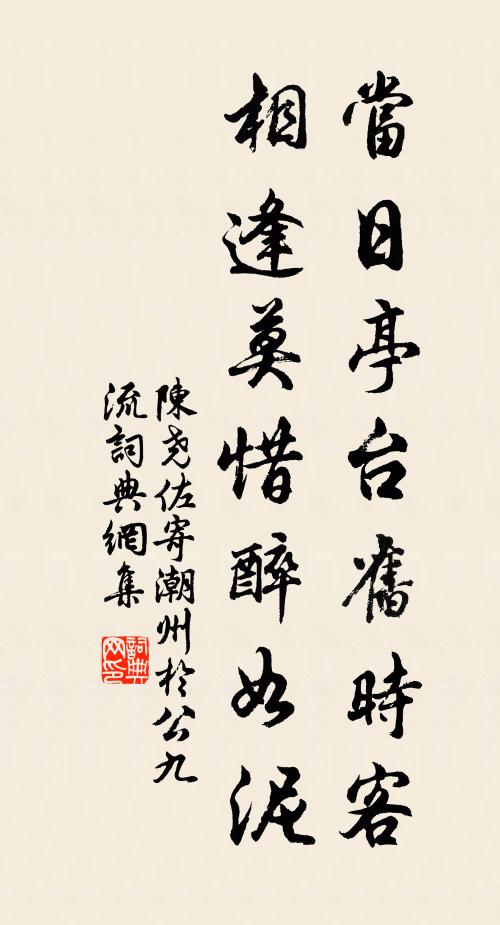 當日亭台舊時客
相逢莫惜醉如泥
陳堯佐寄潮州於公九
流詞典網集
詞典網印